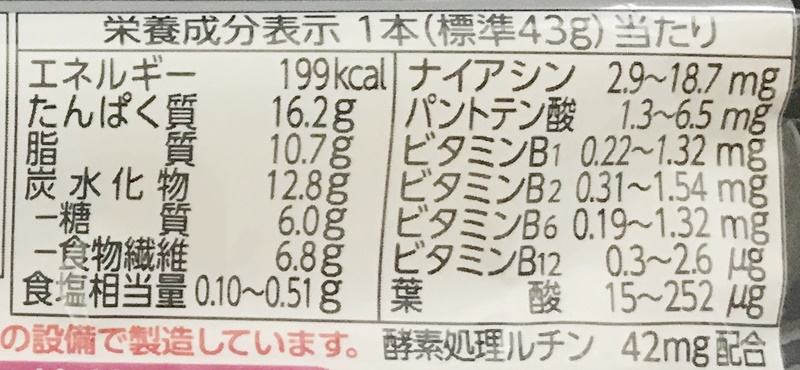 栄養成分表示 1本(標準43g)当たり
エネルギー 199kcal
たんぱく質 16.2g
脂質 10.7g
炭水化物 12.8g
－糖質 6.0g
－食物繊維 6.8g
食塩相当量 0.10～0.51g
ナイアシン 2.9～18.7mg
パントテン酸 1.3～6.5mg
ビタミンB1 0.22～1.32mg
ビタミンB2 0.31～1.54mg
ビタミンB6 0.19～1.32mg
ビタミンB12 0.3～2.6μg
葉酸 15～252μg
の設備で製造しています。
酵素処理ルチン 42mg配合